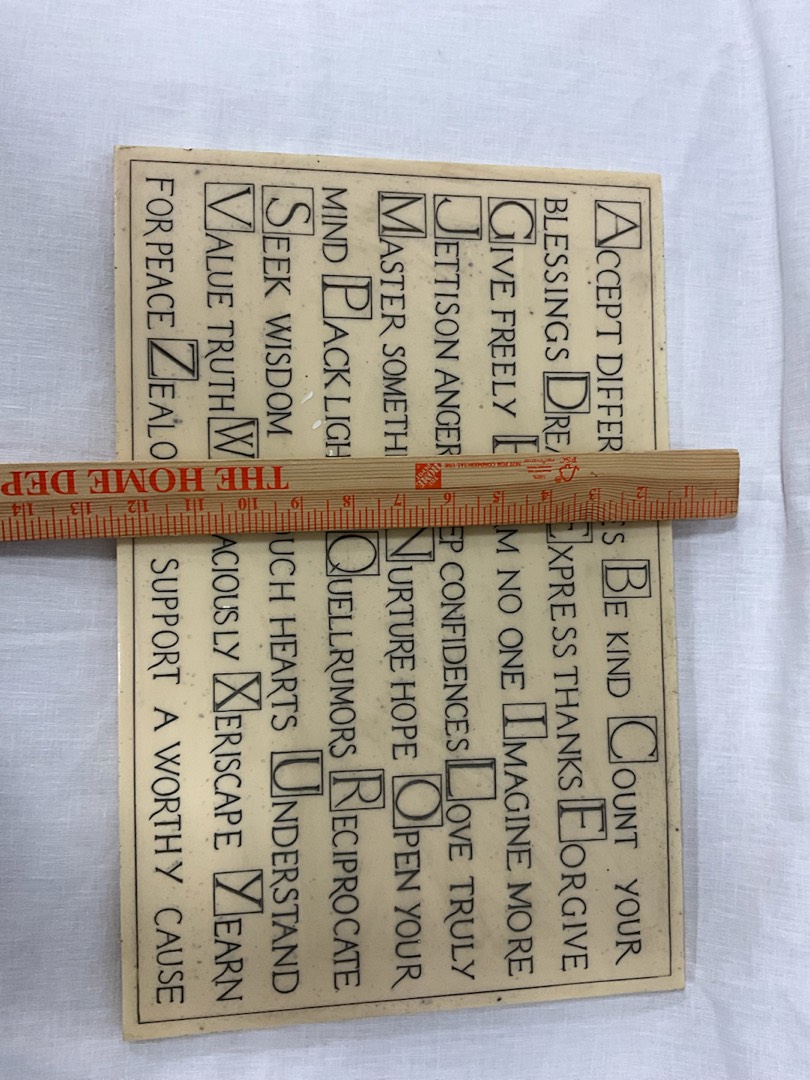 ACCEPT DIFFER S BE KIND COUNT YOUR
BLESSINGS DREA EXPRESS THANKS FORGIVE
GIVE FREELY H M NO ONE IMAGINE MORE
JETTISON ANGER EP CONFIDENCES LOVE TRULY
MASTER SOMETHI NURTURE HOPE OPEN YOUR
MIND PACK LIGH QUELL RUMORS RECIPROCATE
SEEK WISDOM UCH HEARTS UNDERSTAND
VALUE TRUTH W ACIOUSLY XERISCAPE YEARN
FOR PEACE ZEALO SUPPORT A WORTHY CAUSE
THE HOME DEP
1 2 3 4 5 6 7 8 9 10 11 12 13 14